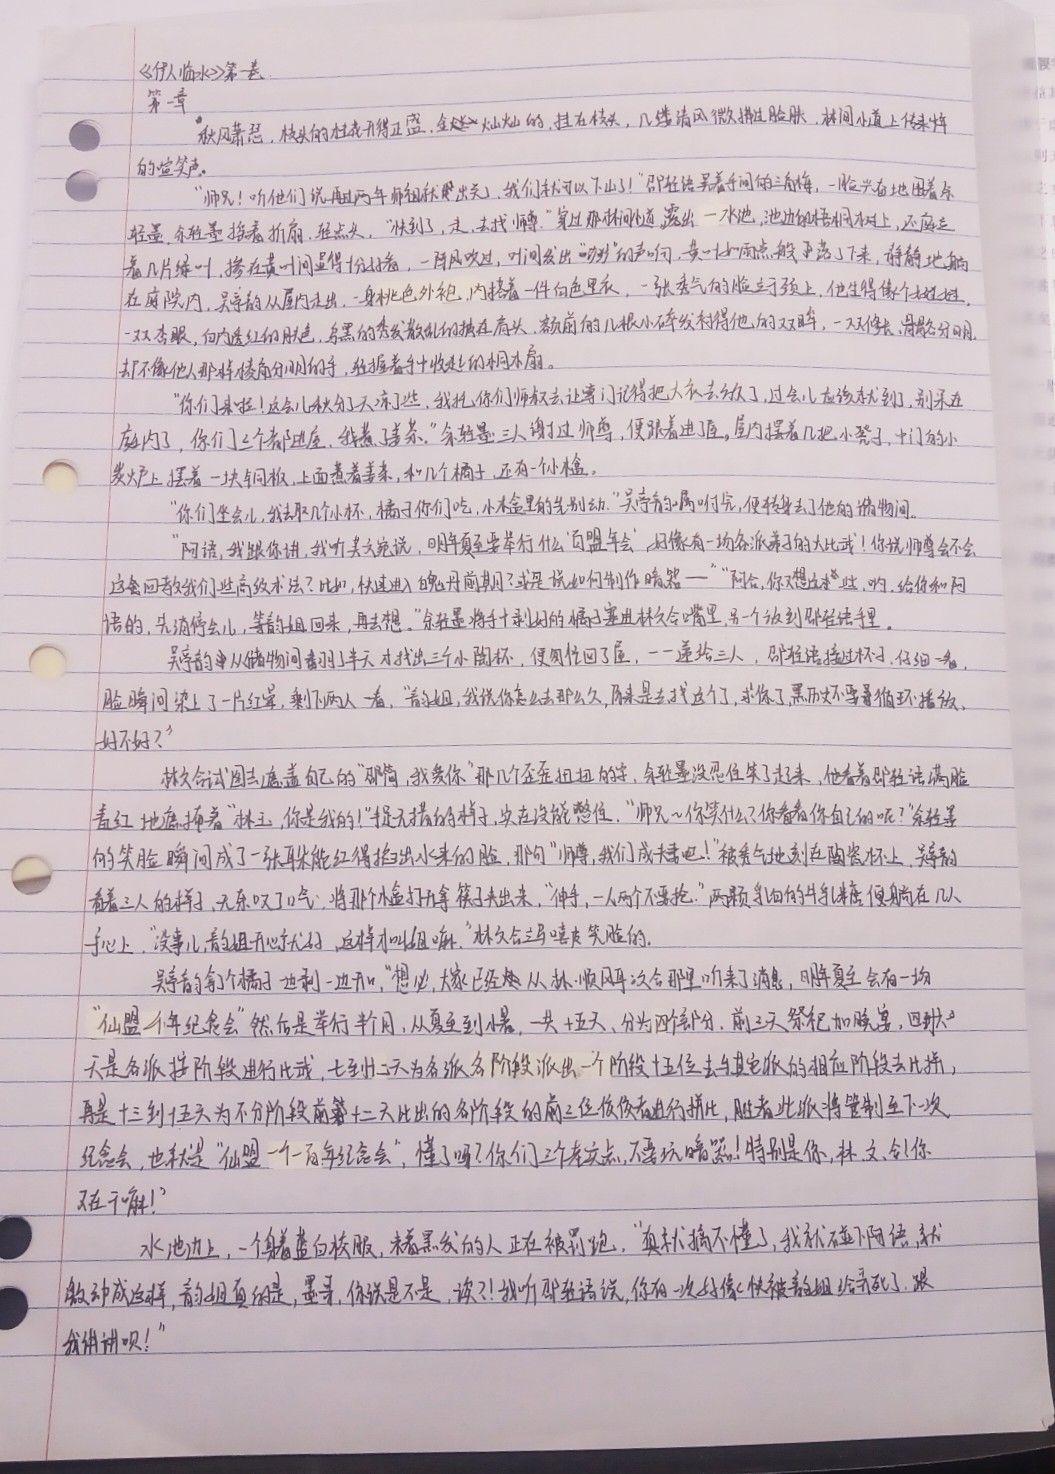 《伊人临水》第一卷
第一章
秋风萧瑟，枝头的桂花开得正盛，金灿灿的，挂在枝头，几缕清风微拂过脸肤，林间小道上传来阵阵
的喧笑声。
"师兄！听他们说再过两年师祖就出关了，我们就可以下山了！"邵轻语晃着手间的三角梅，一脸兴奋地围着余
轻墨，余轻墨摇着折扇，轻点头，"快到了，走，去找师尊。"穿过那林间小道，露出一水池，池边的梧桐树上，还留
着几片绿叶，掺在黄叶间显得十分好看，一阵风吹过，叶间发出"吵吵"的声响，黄叶如雨点般落了下来，静静地躺
在庭院内，吴亭韵从屋内走出，一身桃色外袍，内搭着一件白色里衣，一张秀气的脸立于颈上，他生得像个姑娘，
一双杏眼，白内透红的肤色，乌黑的秀发散乱的披在肩头，额前的几根小碎发刺得他的双眸，一双修长，骨骼分明，
却不像他人那样棱角分明的手，轻握着手中收起的桐木扇。
"你们来啦！这会儿秋分了天凉了些，我托你们师叔去让掌门记得把大衣去分次了，过会儿应该就到了，别呆在
庭内了，你们三个都进屋，我煮了姜茶。"余轻墨三人谢过师尊，便跟着进了屋。屋内摆着几把小凳子，中间的小
炭炉上摆着一块铜板，上面煮着姜茶，和几个橘子，还有一个小盒。
"你们坐会儿，我去取几个小杯，橘子你们吃，小木盒里的先别动。"吴亭韵嘱咐完，便转身去了他的储物间。
"阿语，我跟你讲，我听吴文宛说，明年夏至要举行什么'百盟年会'，好像有一场各派弟子的大比试！你说师尊会不会
这会回教我们些高级术法？比如，快速进入魄丹前期？或是说如何制作暗器——""阿合，你又想这些，哟，给你和阿
语的，先消停会儿，等韵姐回来，再去想。"余轻墨将手中剥好的橘子塞进林文合嘴里，另一个放到邵轻语手里。
吴亭韵从储物间翻了半天才找出三个小陶杯，便匆忙回了屋，一一递给三人，邵轻语接过杯子，仔细一看，
脸瞬间染上了一片红晕，剩下两人一看，"韵姐，我说你怎么去那么久，原来是去找这个了，求你了，黑历史不要循环播放，
好不好？"
林文合试图去遮盖自己的"那简，我爱你"那几个歪歪扭扭的字，余轻墨没忍住笑了起来，他看着邵轻语满脸
羞红地遮掩着"林玉，你是我的！"手足无措的样子，实在没能憋住，"师兄～你笑什么？你看看你自己的呢？"余轻墨
的笑脸瞬间成了一张耳朵能红得掐出水来的脸，那句"师尊，我们成亲吧！"被秀气地刻在陶瓷杯上，吴亭韵
看着三人的样子，无奈叹了口气，将那个小盒打开拿筷子夹出来，"伸手，一人两个不要抢。"两颗乳白的牛乳糖便躺在几人
手心上，"没事儿，韵姐开心就好，这样才叫姐嘛。"林文合立马嘻皮笑脸的。
吴亭韵拿个橘子边剥一边开口，"想必，大家已经从林·顺风耳·文合那里听来了消息，明年夏至会有一场
"仙盟一个年纪念会"然后是举行半个月，从夏至到小暑，一共十五天，分为四个部分，前三天祭祀加晚宴，四到六
天是各派按阶段进行比试，七到十二天为各派各阶段派出一个阶段十五位去与其它派的相应阶段去比拼，
再是十三到十五天为不分阶段前十二天比出的各阶段的前三位佼佼者进行拼比，胜者此派将管制至下一次
纪念会，也就是"仙盟一个一百年纪念会"，懂了吗？你们三个老实点，不要玩暗器！特别是你，林、文、合！你
又在干嘛！"
水池边上，一个身着蓝白校服，束着黑发的人正在被罚跑，"真就搞不懂了，我就碰下阿语，就
激动成这样，韵姐真的是，墨哥，你说是不是，诶？！我听邵轻语说，你有一次好像快被韵姐给弄死了，跟
我讲讲呗！"